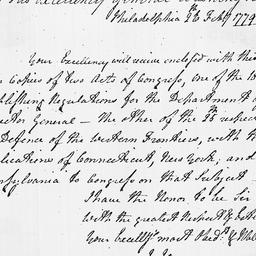 His Excellency
Philadelphia 26 Feby 1779
Your Excellency will receive enclosed with this
Copies of two Acts of Congress, one of the
blishing Regulations for the Department
ctor General — the other of the respec
Defence of the Western Frontiers, with
lications of Connecticut, New York, and
nsylvania to Congress on that Subject —
I have the Honor to be Sir
With the greatest Respect &
Your Excellys most Obedt. &